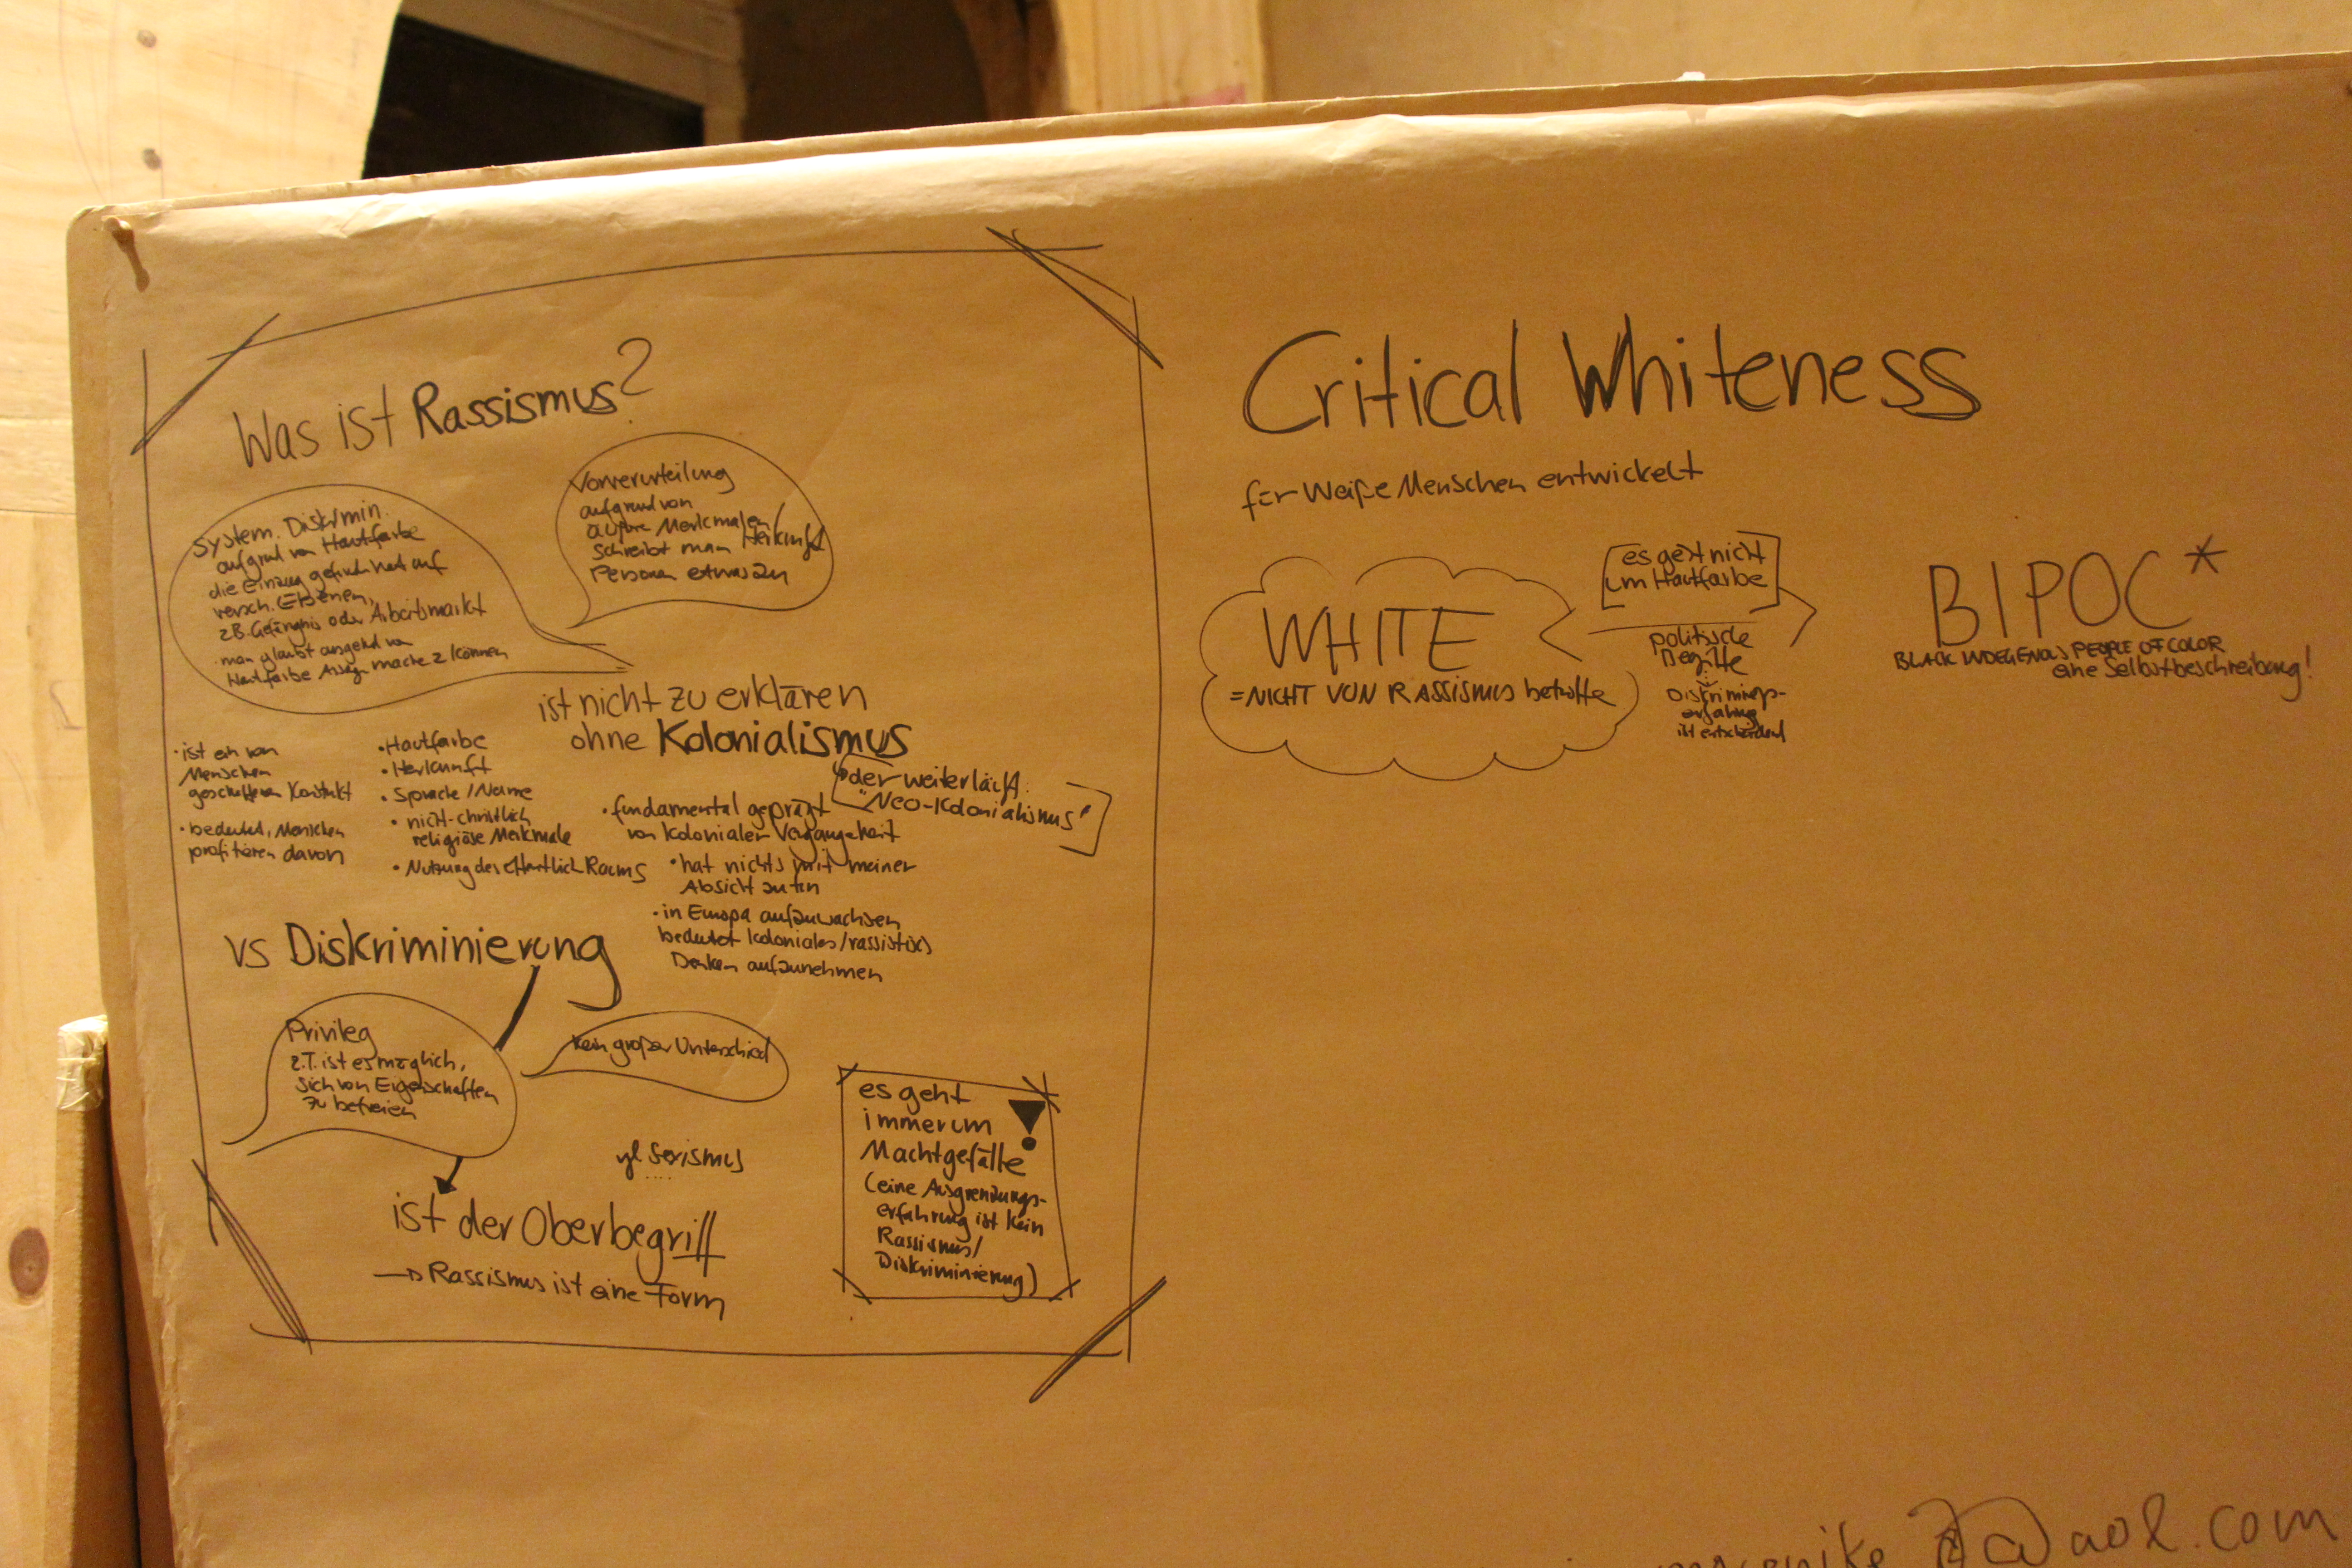 Was ist Rassismus?
System. Diskrimin.
aufgrund von Hautfarbe
die Einzug gefunden hat auf
versch. Ebenen,
z.B. Gefängnis oder Arbeitsmarkt
man glaubt ausgehend von
Hautfarbe machen z können
Vorverurteilung
aufgrund von
äußere Merkmalen/
Herkunft
schreibt man
Personen etwas zu
ist nicht zu erklären
ohne Kolonialismus
der weiterläuft.
"Neo-Kolonialismus"
• ist ein von
Menschen
geschaffenen Konstrukt
• bedeutet, Menschen
profitieren davon
• Hautfarbe
• Herkunft
• Sprache / Name
• nicht-christlich
religiöse Merkmale
• Nutzung des öffentlich Raums
• fundamental geprägt
von kolonialer Vergangenheit
• hat nichts mit meiner
Absicht zu tun
• in Europa aufzuwachsen
bedeutet koloniales/rassistisches
Denken aufzunehmen
vs Diskriminierung
Privileg
z.T. ist es möglich,
sich von Eigenschaften
zu befreien
kein großer Unterschied
vgl Sexismus
....
ist der Oberbegriff
→ Rassismus ist eine Form
es geht
immer um
Machtgefälle
!
(eine Ausgrenzungs-
erfahrung ist kein
Rassismus/
Diskriminierung)
Critical Whiteness
für Weiße Menschen entwickelt
WHITE
= NICHT VON RASSISMUS betroffe
es geht nicht
um Hautfarbe
politische
Begriffe
Diskriminigs-
erfahrung
ist entscheidend
BIPOC*
BLACK INDEGENOUS PEOPLE OF COLOR
eine Selbstbeschreibung!
@aol.com